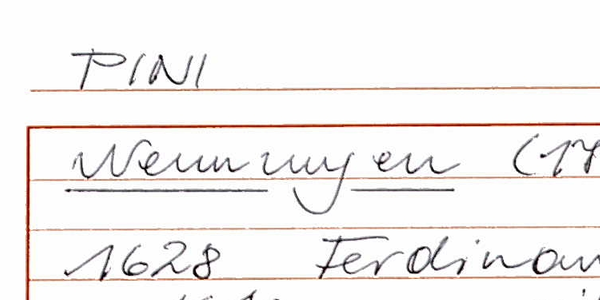 PINI
Wenningen (17
1628 Ferdinan